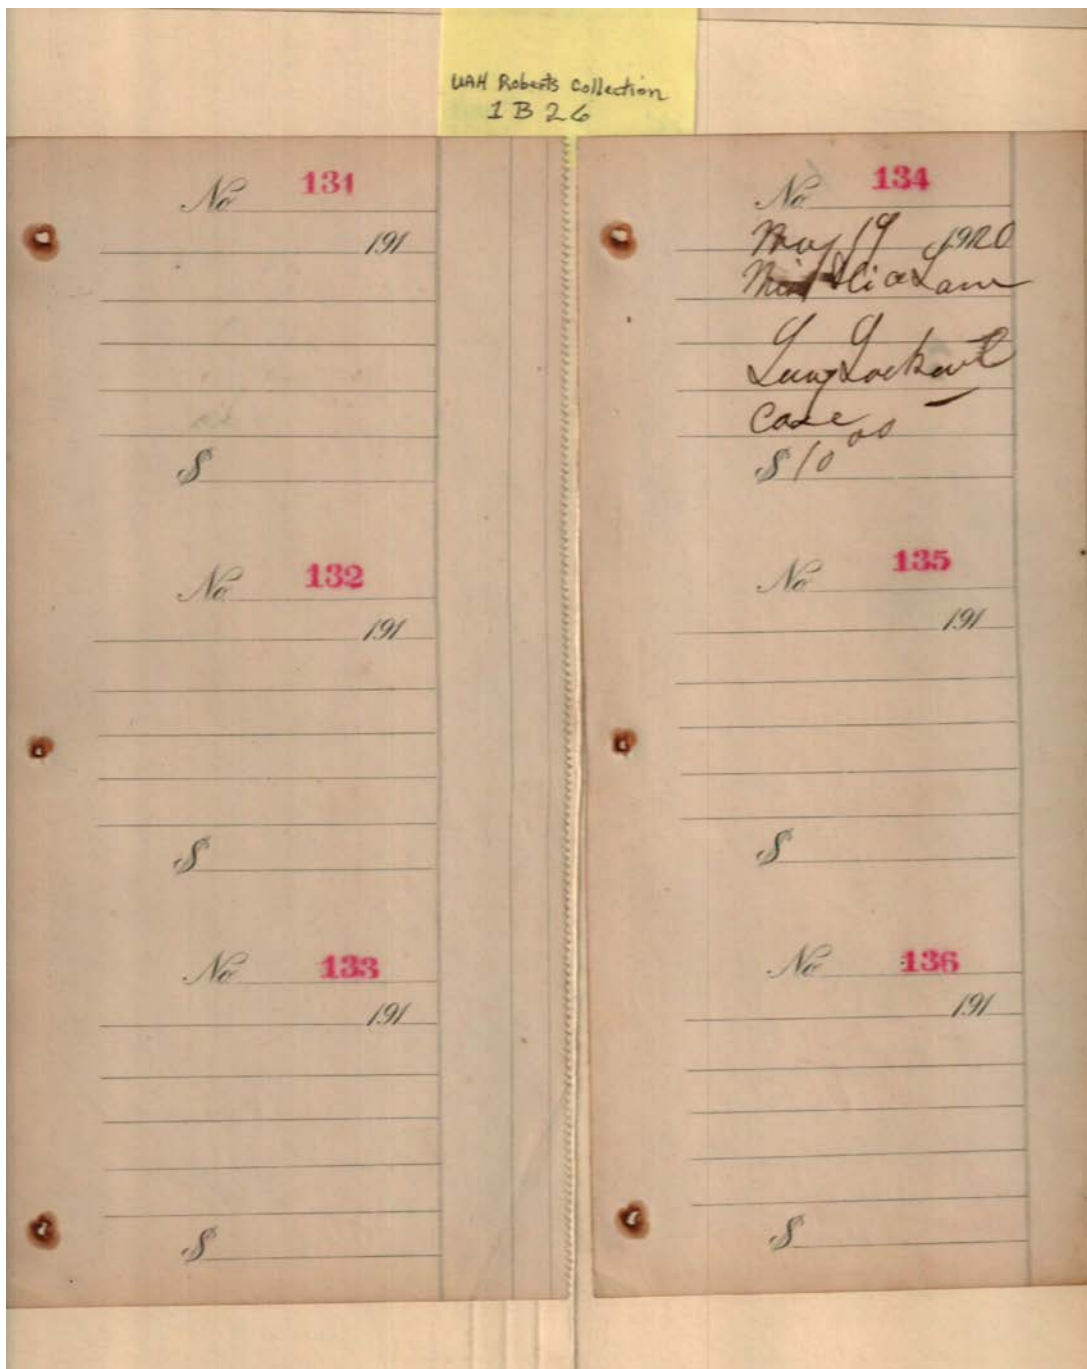 UAH Roberts Collection
1B26
No 131
191
$
No 132
191
$
No 133
191
$
No 134
May 19 1920
Lane
Case
$ 10 00
No 135
191
$
No 136
191
$